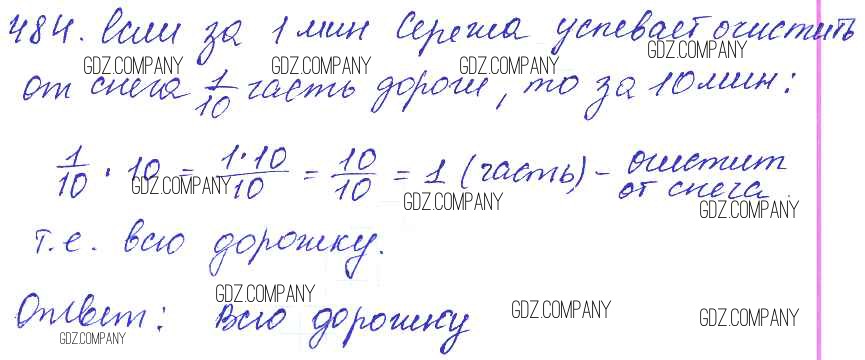 484. Если за 1 мин Сережа успевает очистить
от снега 1/10 часть дороги, то за 10 мин:
1/10 · 10 = 1·10/10 = 10/10 = 1 (часть) - очистит от снега
т.е. всю дорожку.
Ответ: Всю дорожку
GDZ.COMPANY
GDZ.COMPANY
GDZ.COMPANY
GDZ.COMPANY
GDZ.COMPANY
GDZ.COMPANY
GDZ.COMPANY
GDZ.COMPANY
GDZ.COMPANY
GDZ.COMPANY
GDZ.COMPANY